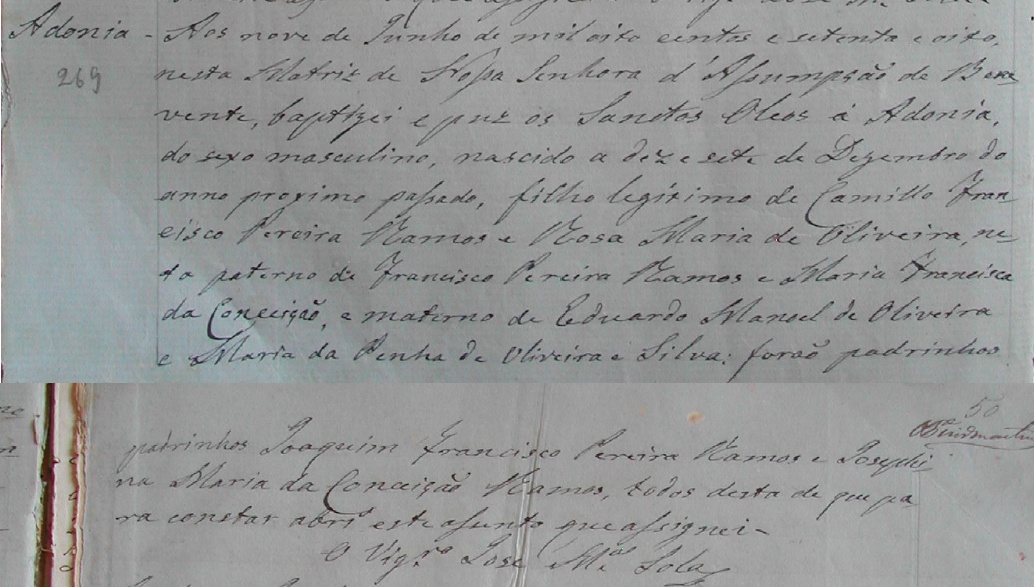 Adonia - Aos nove de Junho de mil oito centos e setenta e oito,
269
nesta Matriz de Nossa Senhora d'Assumpção de Bene
vente, baptizei e puz os Sanctos Oleos á Adonia,
do sexo masculino, nascido a dez e sete de Dezembro do
anno proximo passado, filho legitimo de Camillo Fran
cisco Pereira Ramos e Rosa Maria de Oliveira, ne-
to paterno de Francisco Pereira Ramos e Maria Francisca
da Conceição, e materno de Eduardo Manoel de Oliveira
e Maria da Penha de Oliveira e Silva: forão padrinhos
50
padrinhos Joaquim Francisco Pereira Ramos e Josephi
na Maria da Conceição Ramos, todos desta de que pa
ra constar abri este assunto que assignei-
O Vigr.º José M.ª Sola